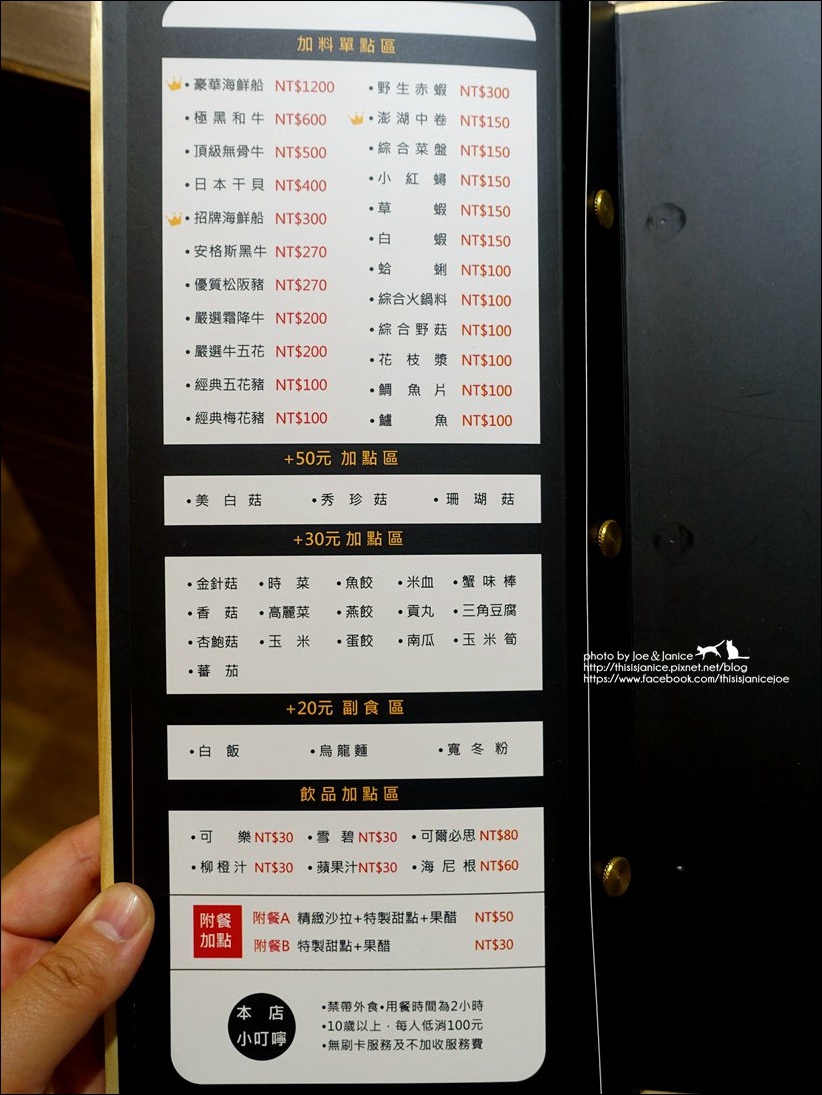 加料單點區
•豪華海鮮船 NT$1200
•極黑和牛 NT$600
•頂級無骨牛 NT$500
•日本干貝 NT$400
•招牌海鮮船 NT$300
•安格斯黑牛 NT$270
•優質松阪豬 NT$270
•嚴選霜降牛 NT$200
•嚴選牛五花 NT$200
•經典五花豬 NT$100
•經典梅花豬 NT$100
•野生赤蝦 NT$300
•澎湖中卷 NT$150
•綜合菜盤 NT$150
•小紅蟳 NT$150
•草蝦 NT$150
•白蝦 NT$150
•蛤蜊 NT$100
•綜合火鍋料 NT$100
•綜合野菇 NT$100
•花枝漿 NT$100
•鯛魚片 NT$100
•鱸魚 NT$100
+50元 加點區
•美白菇 •秀珍菇 •珊瑚菇
+30元加點區
•金針菇 •時菜 •魚餃 •米血 •蟹味棒
•香菇 •高麗菜 •燕餃 •貢丸 •三角豆腐
•杏鮑菇 •玉米 •蛋餃 •南瓜 •玉米筍
•蕃茄
+20元 副食區
•白飯 •烏龍麵 •寬冬粉
飲品加點區
•可樂 NT$30 •雪碧 NT$30 •可爾必思 NT$80
•柳橙汁 NT$30 •蘋果汁 NT$30 •海尼根 NT$60
附餐
加點
附餐A 精緻沙拉+特製甜點+果醋 NT$50
附餐B 特製甜點+果醋 NT$30
本店
小叮嚀
•禁帶外食•用餐時間為2小時
•10歲以上，每人低消100元
•無刷卡服務及不加收服務費
photo by Joe & Janice
http://thisisjanice.pixnet.net/blog
https://www.facebook.com/thisisjanicejoe